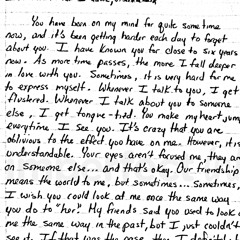 You have been on my mind for quite some time
now, and it's been getting harder each day to forget
about you. I have known you for close to six years
now. As more time passes, the more I fall deeper
in love with you. Sometimes, it is very hard for me
to express myself. Whenever I talk to you, I get
flustered. Whenever I talk about you to someone
else, I get tongue-tied. You make my heart jump
everytime I see you. It's crazy that you are
oblivious to the effect you have on me. However, it is
understandable. Your eyes aren't focused me, they are
on someone else... and that's okay. Our friendship
means the world to me, but sometimes... Sometimes,
I wish you could look at me once the same way
you do to "her". My friends said you used to look at
me the same way in the past, but I just couldn't
see it. If that was the case, then I